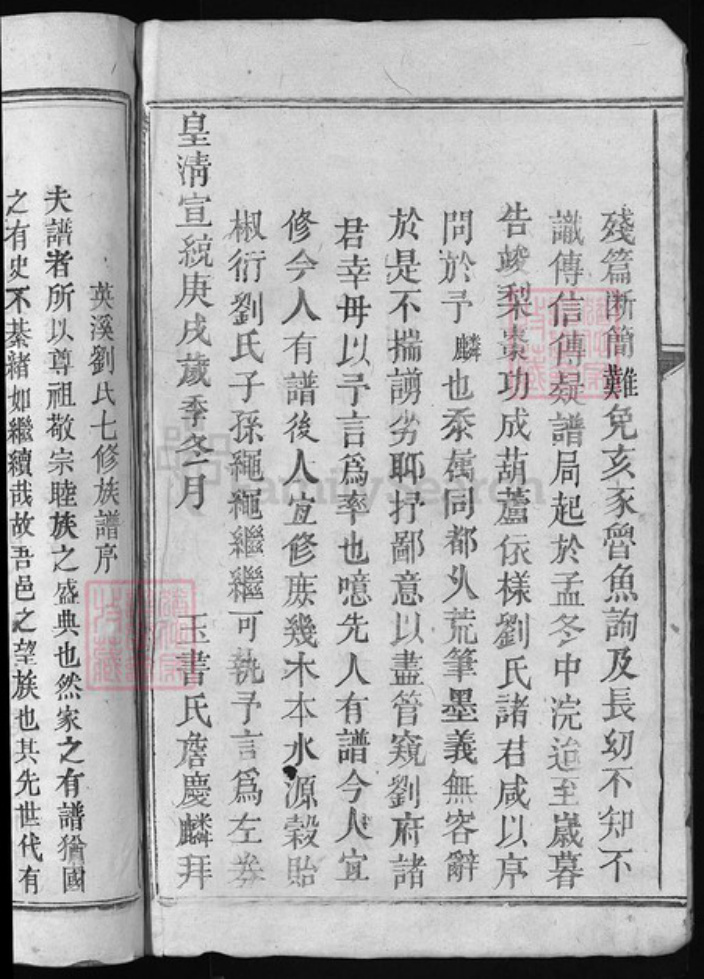 殘篇断簡難免亥豕魯魚詢及長幼不知不
識傳信傳疑譜局起於孟冬中浣迨至歲暮
告竣梨棗功成葫蘆依樣劉氏諸君咸以序
問於予麟也忝属同都久荒筆墨義無容辭
於是不揣謭劣聊抒鄙意以盡管窺劉府諸
君幸毋以予言爲率也噫先人有譜今人宜
修今人有譜後人宜修庶幾木本水源穀貽
椒衍劉氏子孫繩繩繼繼可執予言爲左券
皇清宣統庚戌歲季冬月 玉書氏詹慶麟拜
英溪劉氏七修族譜序
夫譜者所以尊祖敬宗睦族之盛典也然家之有譜猶國
之有史不綦緒如繼續哉故吾邑之望族也其先世代有
FamilySearch